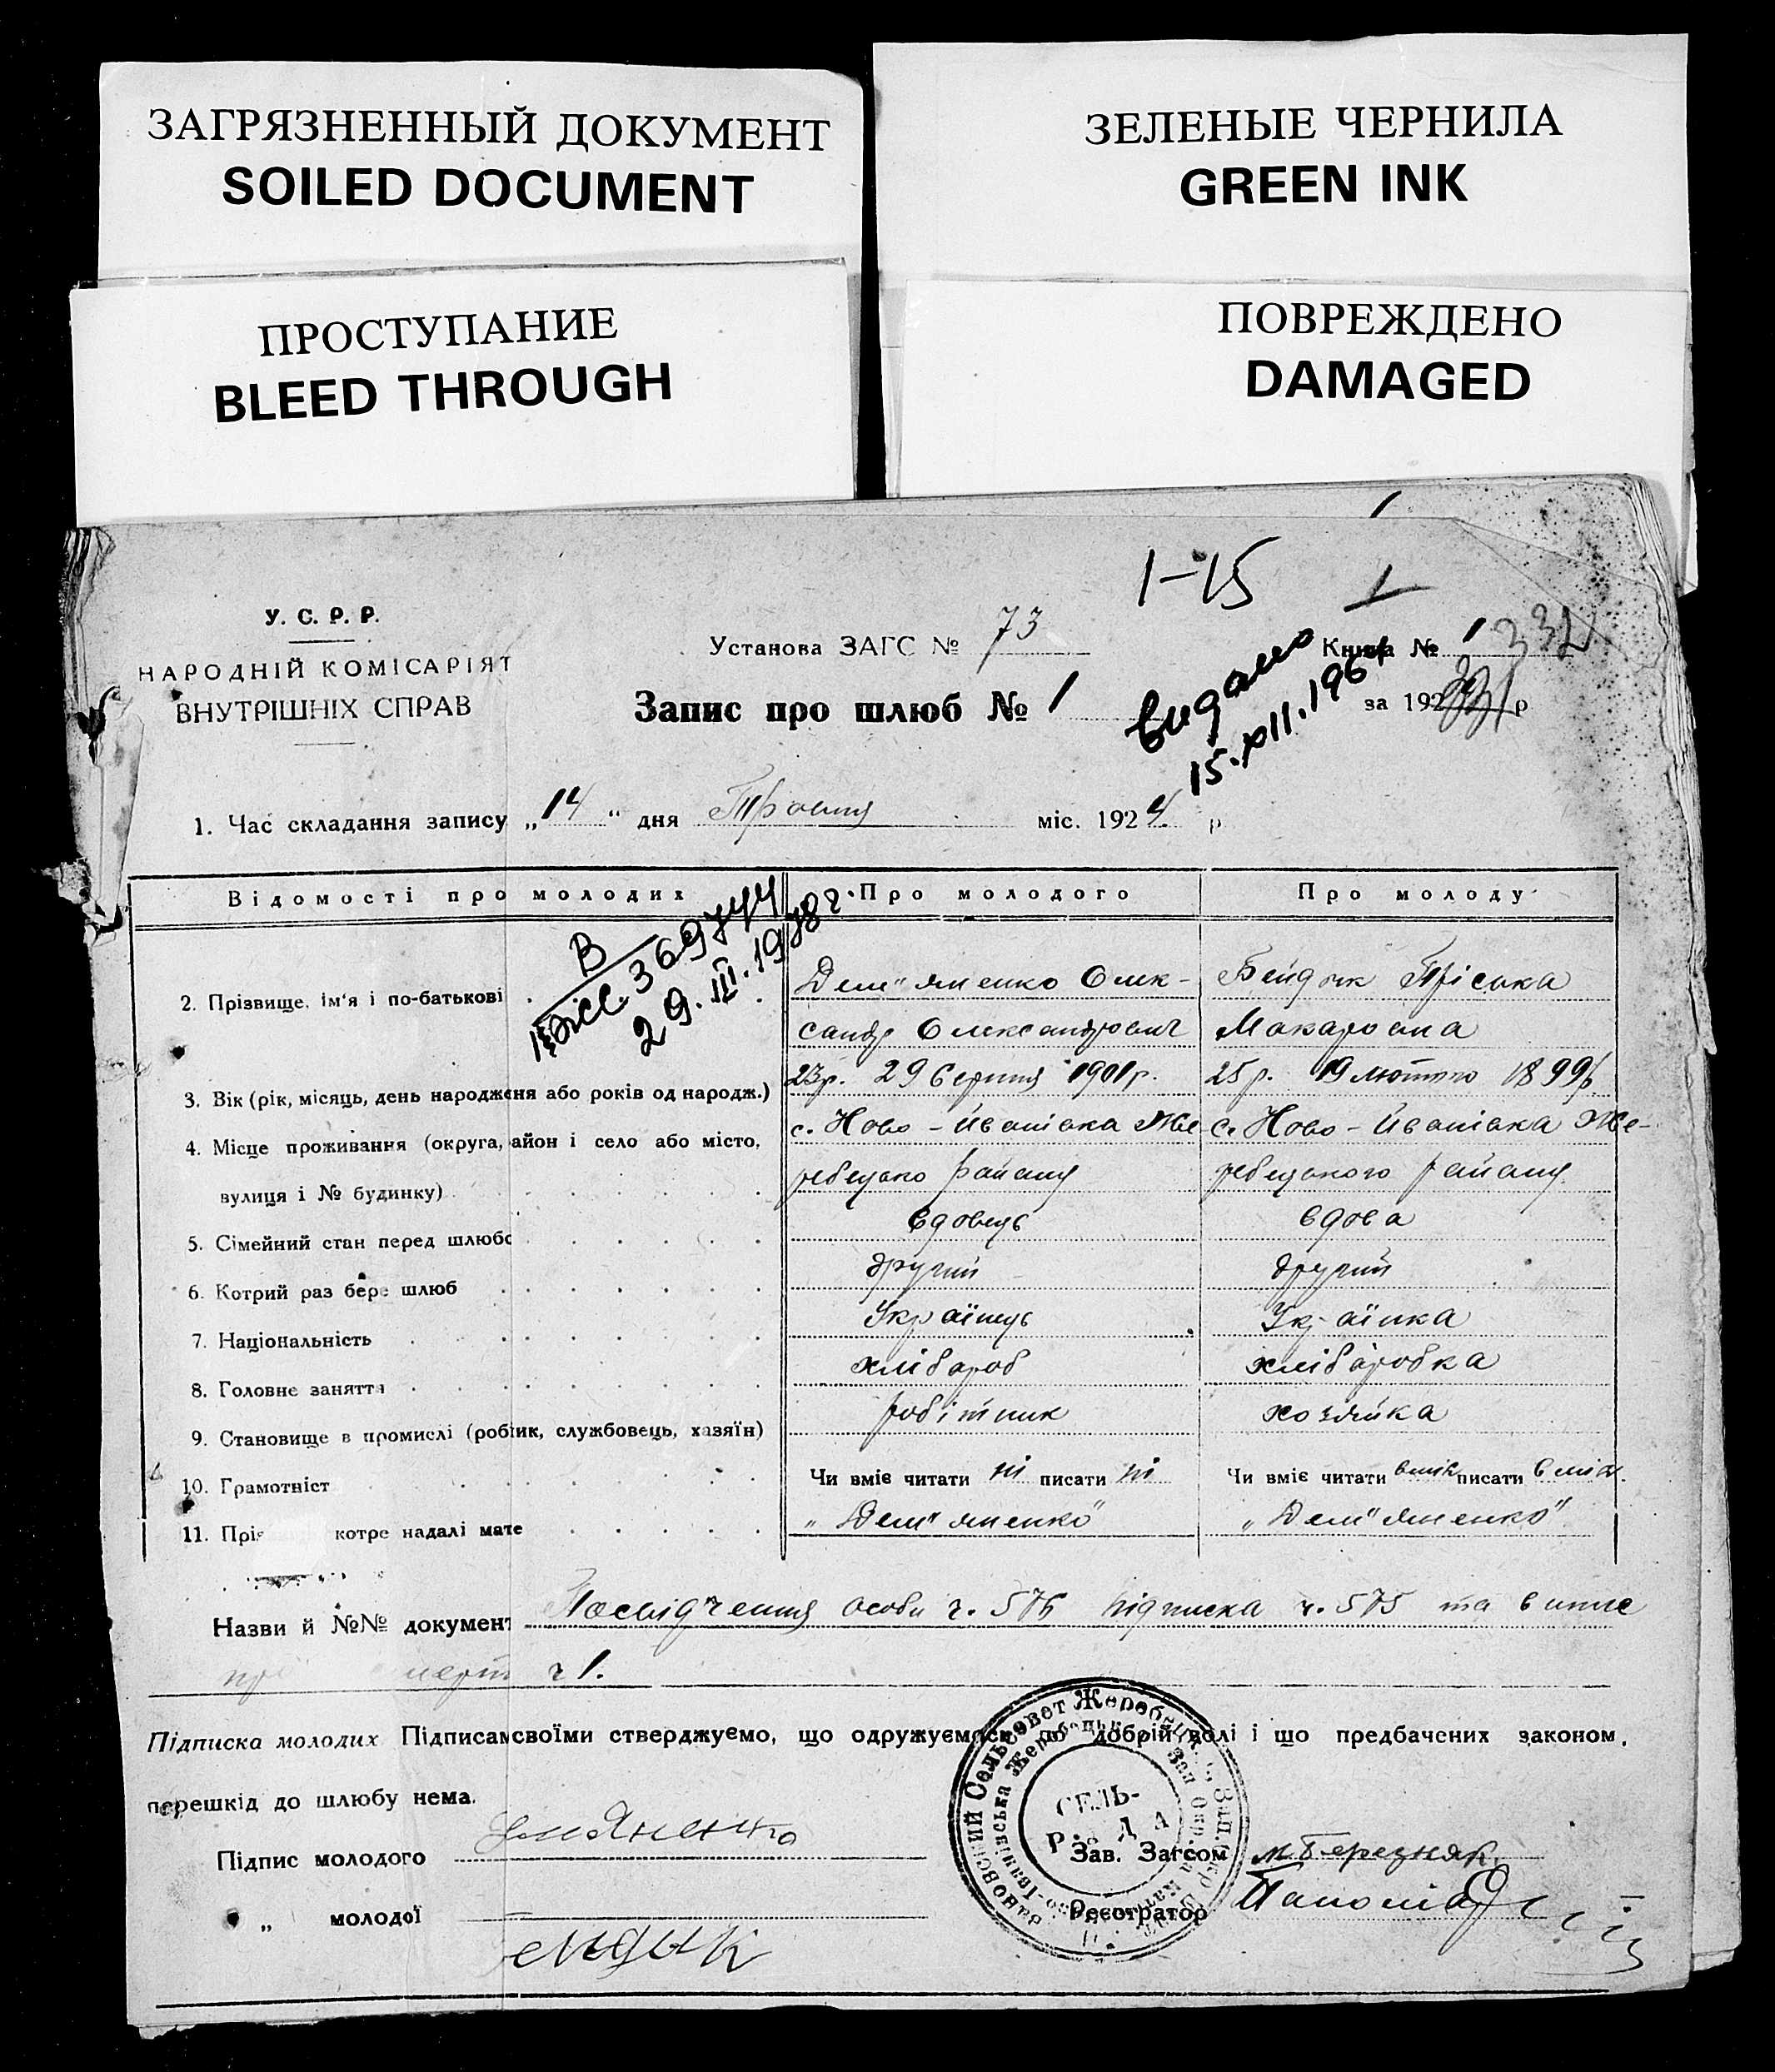 ЗАГРЯЗНЕННЫЙ ДОКУМЕНТ
SOILED DOCUMENT
ЗЕЛЕНЫЕ ЧЕРНИЛА
GREEN INK
ПРОСТУПАНИЕ
BLEED THROUGH
ПОВРЕЖДЕНО
DAMAGED
1-15
1
У. С. Р. Р.
НАРОДНІЙ КОМІСАРІЯТ
ВНУТРІШНІХ СПРАВ
Установа ЗАГС № 73
Книга № 1
332
Запис про шлюб № 1
за 192 р
видано
15.XII.196
1. Час складання запису „14“ дня Травня міс. 1924 р
Відомості про молодих
Про молодого
Про молоду
В
369744
29.III.1978г.
2. Прізвище, ім'я і по-батькові
Дем"яненко Олек-
сандр Олександрович
Бейдик Пріська
Макаровна
3. Вік (рік, місяць, день народженя або років од народж.)
23р. 29 Серпня 1901р.
25 р. 19 лютого 1899р.
4. Місце проживання (округа, айон і село або місто,
вулиця і № будинку)
с. Ново-Йванівка Же
ребецько Району
с. Ново-Йванівка Же-
ребецького району
5. Сімейний стан перед шлюбо
вдовець
вдова
6. Котрий раз бере шлюб
другий
другий
7. Національність
Українець
Українка
8. Головне заняття
хлібароб
хлібаробка
9. Становище в промислі (робіик, службовець, хазяїн)
робітник
хозяйка
10. Грамотніст
Чи вміє читати ні писати ні
Чи вміє читати вміє писати вміє
11. Прі котре надалі мате
„Дем"яненко"
„Дем"яненко"
Назви й №№ документ Посвідчення особи ч. 576 підписка ч. 575 та випис
про смерть ч 1.
Підписка молодих Підписам своїми стверджуємо, що одружуємось по добрій волі і що предбачених законом,
перешкід до шлюбу нема.
Підпис молодого емЯненко
„ молодої ейдик
СЕЛЬ-
РАДА
Зав. Загсом М. Березняк
Реєстратор